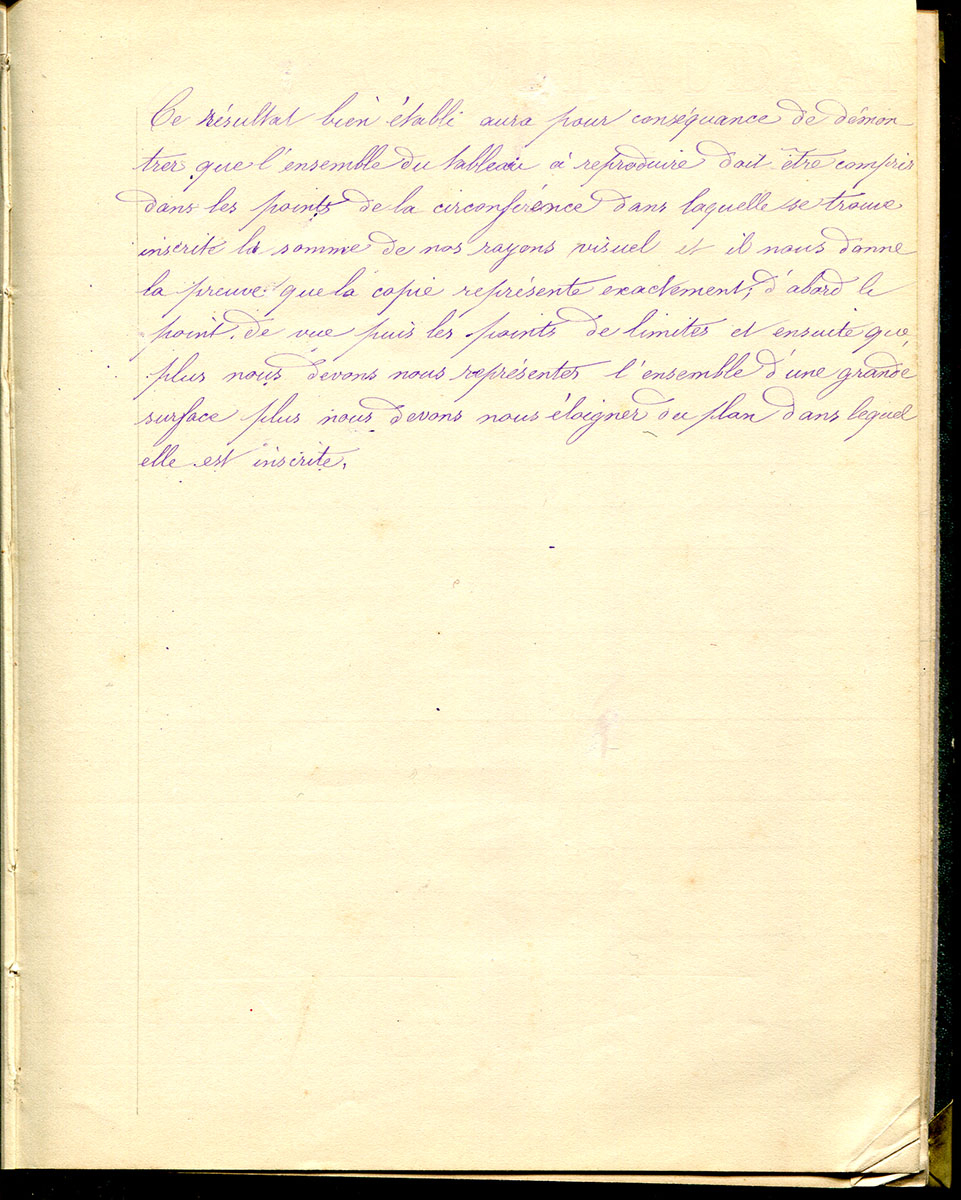 Ce résultat bien établi aura pour conséquance de démon-
trer que l'ensemble du tableau à reproduire doit être compris
dans les points de la circonférence dans laquelle se trouve
inscrite la somme de nos rayons visuel et il nous donne
la preuve que la copie représente exactement, d'abord le
point de vue puis les points de limites et ensuite que
plus nous devons nous représenter l'ensemble d'une grande
surface plus nous devons nous éloigner du plan dans lequel
elle est inscrite.